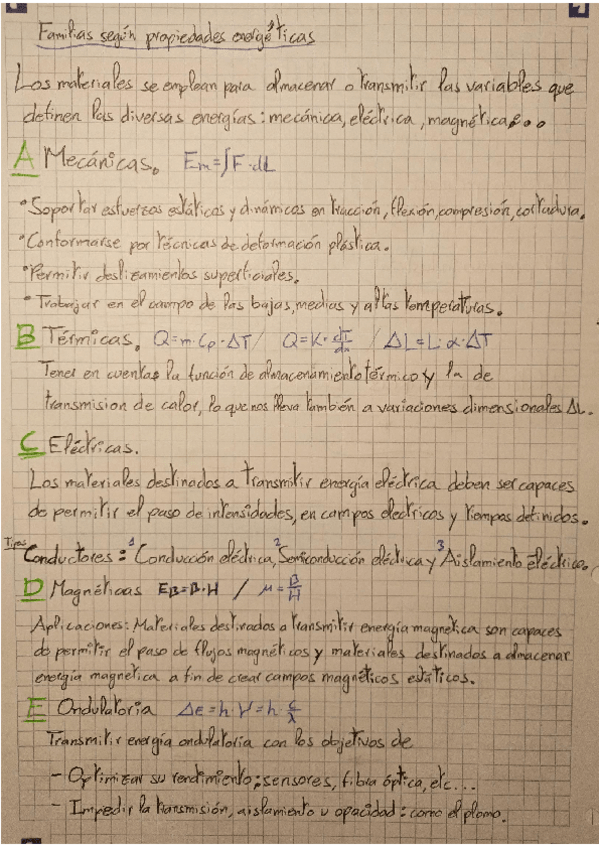 Familias según propiedades energéticas
Los materiales se emplean para almacenar o transmitir las variables que
definen las diversas energías: mecánica, eléctrica, magnética...
A Mecánicas. Em=∫F·dL
•Soportar esfuerzos estáticos y dinámicos en tracción, flexión, compresión, cortadura.
•Conformarse por técnicas de deformación plástica.
•Permitir deslizamientos superficiales.
•Trabajar en el campo de las bajas, medias y altas temperaturas.
B Térmicas. Q=m·Cp·ΔT / Q=K·dT/dx / ΔL=L·α·ΔT
Tener en cuenta la función de almacenamiento térmico y la de
transmision de calor, lo que nos lleva también a variaciones dimensionales ΔL.
C Eléctricas.
Los materiales destinados a transmitir energía eléctrica deben ser capaces
de permitir el paso de intensidades, en campos electricos y tiempos definidos.
Tipos Conductores: 1 Conducción eléctrica, 2 Semiconducción eléctrica y 3 Aislamiento eléctrico.
D Magnéticas EB=B·H / μ=B/H
Aplicaciones: Materiales destinados a transmitir energía magnetica son capaces
de permitir el paso de flujos magnéticos y materiales destinados a almacenar
energía magnetica a fin de crear campos magnéticos estáticos.
E Ondulatoria ΔE=h·ν=h·c/λ
Transmitir energía ondulatoria con los objetivos de
- Optimizar su rendimiento; sensores, fibra óptica, etc...
- Impedir la transmisión, aislamiento u opacidad: como el plomo.